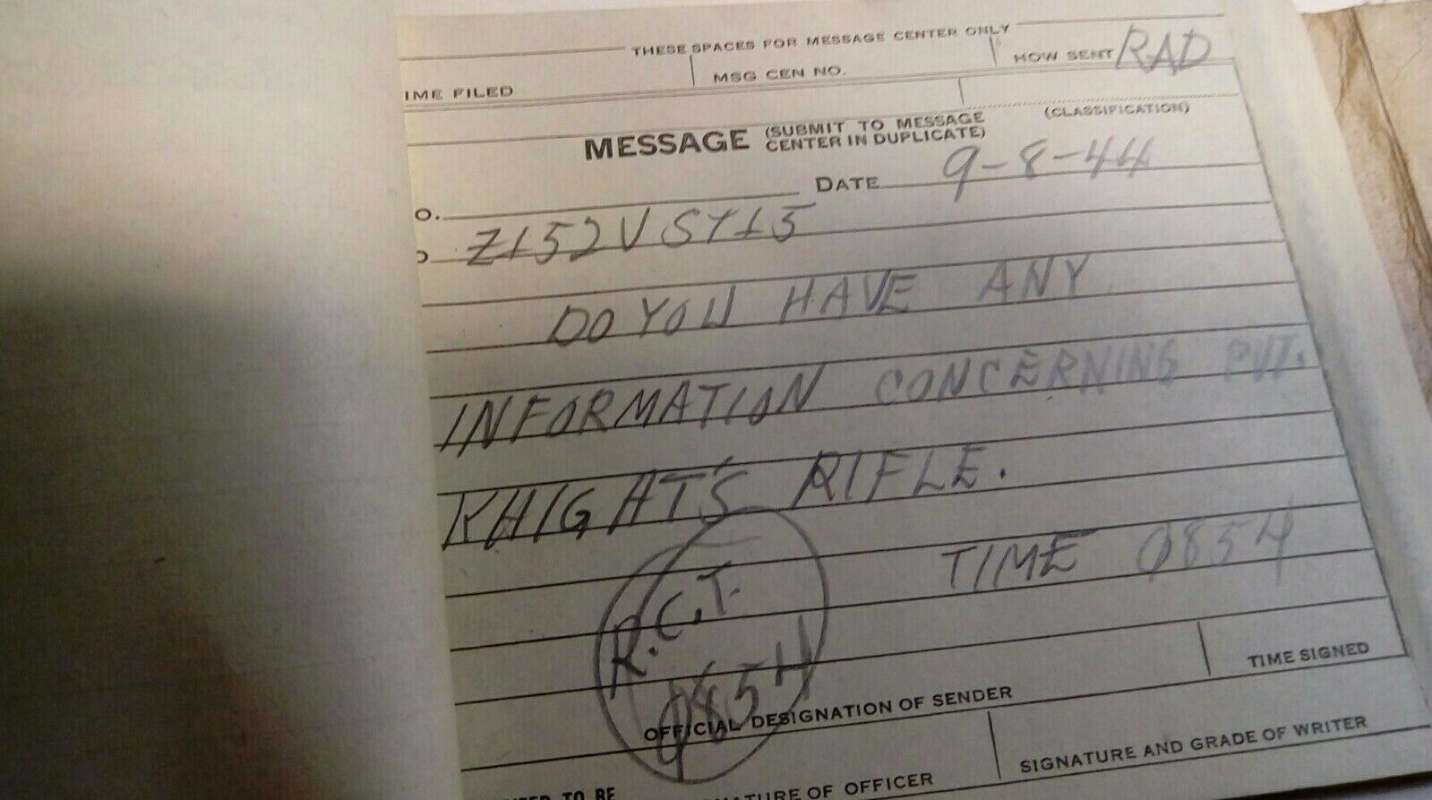 THESE SPACES FOR MESSAGE CENTER ONLY
IME FILED MSG CEN NO. HOW SENT RAD
MESSAGE (SUBMIT TO MESSAGE CENTER IN DUPLICATE) (CLASSIFICATION)
O. DATE 9-8-44
Z152V SY15
DO YOU HAVE ANY
INFORMATION CONCERNING PVT.
KHIGHT'S RIFLE.
TIME 0854
R.C.T.
0854
OFFICIAL DESIGNATION OF SENDER TIME SIGNED
TO BE ATURE OF OFFICER SIGNATURE AND GRADE OF WRITER